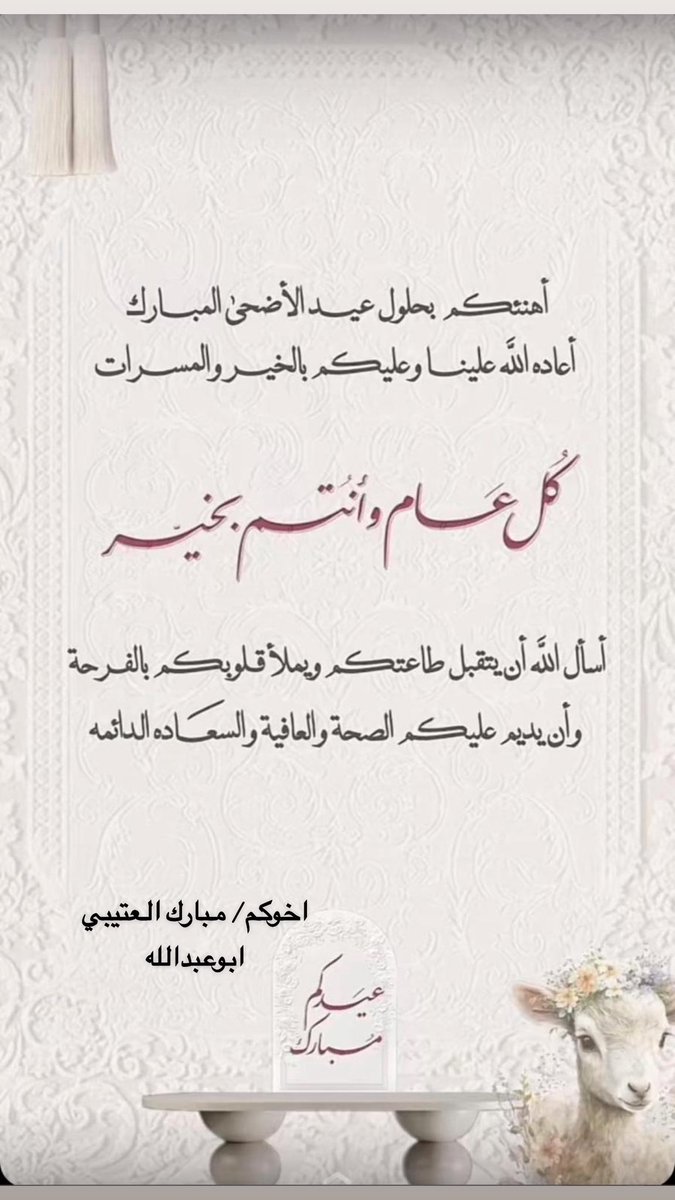 أهنئكم بحلول عيد الأضحىٰ المبارك
أعاده اللَّه علينا وعليكم بالخير والمسرات
كُل عَام وأنتُم بخيّر
أسأل اللَّه أن يتقبل طاعتكم ويملأ قلوبكم بالفرحة
وأن يديم عليكم الصحة والعافية والسعَاده الدائمه
اخوكم/ مبارك العتيبي
ابوعبدالله
عيَدكم
مُبارك